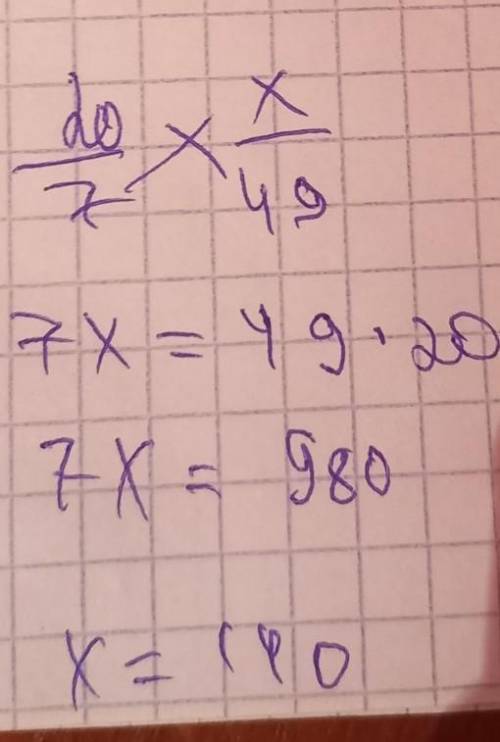 20/7 × x/49
7x = 49 · 20
7x = 980
x = 140